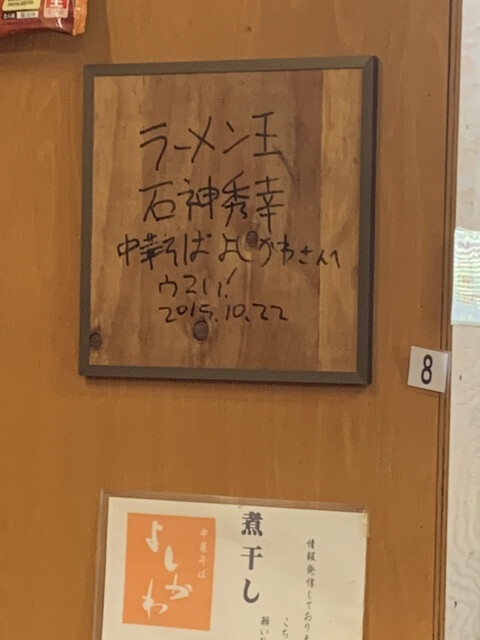 ラーメン王
石神秀幸
中華そば よしかわさんへ
ウマい!
2015.10.22
8
中華そば
よしかわ
煮干し
情報発信しており
こち
願い